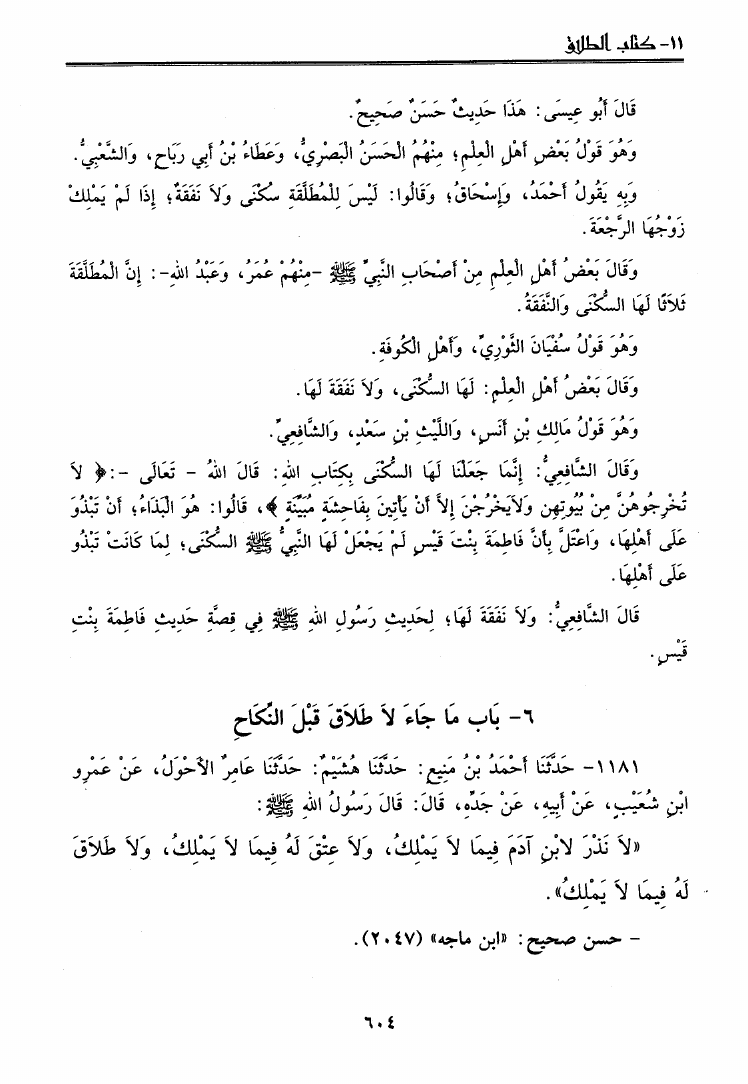 ١١- كتاب الطلاق
قَالَ أَبُو عِيسَى: هَذَا حَدِيثٌ حَسَنٌ صَحِيحٌ.
وَهُوَ قَوْلُ بَعْضِ أَهْلِ الْعِلْمِ؛ مِنْهُمُ الْحَسَنُ الْبَصْرِيُّ، وَعَطَاءُ بْنُ أَبِي رَبَاحٍ، وَالشَّعْبِيُّ.
وَبِهِ يَقُولُ أَحْمَدُ، وَإِسْحَاقُ؛ وَقَالُوا: لَيْسَ لِلْمُطَلَّقَةِ سُكْنَى وَلاَ نَفَقَةٌ؛ إِذَا لَمْ يَمْلِكْ
زَوْجُهَا الرَّجْعَةَ.
وَقَالَ بَعْضُ أَهْلِ الْعِلْمِ مِنْ أَصْحَابِ النَّبِيِّ ﷺ -مِنْهُمْ عُمَرُ، وَعَبْدُ اللهِ-: إِنَّ الْمُطَلَّقَةَ
ثَلاَثًا لَهَا السُّكْنَى وَالنَّفَقَةُ.
وَهُوَ قَوْلُ سُفْيَانَ الثَّوْرِيِّ، وَأَهْلِ الْكُوفَةِ.
وَقَالَ بَعْضُ أَهْلِ الْعِلْمِ: لَهَا السُّكْنَى، وَلاَ نَفَقَةَ لَهَا.
وَهُوَ قَوْلُ مَالِكِ بْنِ أَنَسٍ، وَاللَّيْثِ بْنِ سَعْدٍ، وَالشَّافِعِيِّ.
وَقَالَ الشَّافِعِيُّ: إِنَّمَا جَعَلْنَا لَهَا السُّكْنَى بِكِتَابِ اللهِ: قَالَ اللهُ - تَعَالَى -:﴿ لاَ
تُخْرِجُوهُنَّ مِنْ بُيُوتِهِن وَلاَيَخْرُجْنَ إِلاَّ أَنْ يَأْتِينَ بِفَاحِشَةٍ مُبَيِّنَةٍ ﴾، قَالُوا: هُوَ الْبَذَاءُ؛ أَنْ تَبْذُوَ
عَلَى أَهْلِهَا، وَاعْتَلَّ بِأَنَّ فَاطِمَةَ بِنْتَ قَيْسٍ لَمْ يَجْعَلْ لَهَا النَّبِيُّ ﷺ السُّكْنَى؛ لِمَا كَانَتْ تَبْذُو
عَلَى أَهْلِهَا.
قَالَ الشَّافِعِيُّ: وَلاَ نَفَقَةَ لَهَا؛ لِحَدِيثِ رَسُولِ اللهِ ﷺ فِي قِصَّةِ حَدِيثِ فَاطِمَةَ بِنْتِ
قَيْسٍ.
٦- بَاب مَا جَاءَ لاَ طَلاَقَ قَبْلَ النِّكَاحِ
١١٨١- حَدَّثَنَا أَحْمَدُ بْنُ مَنِيعٍ: حَدَّثَنَا هُشَيْمٌ: حَدَّثَنَا عَامِرٌ الأَحْوَلُ، عَنْ عَمْرِو
ابْنِ شُعَيْبٍ، عَنْ أَبِيهِ، عَنْ جَدِّهِ، قَالَ: قَالَ رَسُولُ اللهِ ﷺ:
«لاَ نَذْرَ لاِبْنِ آدَمَ فِيمَا لاَ يَمْلِكُ، وَلاَ عِتْقَ لَهُ فِيمَا لاَ يَمْلِكُ، وَلاَ طَلاَقَ
لَهُ فِيمَا لاَ يَمْلِكُ».
- حسن صحيح: «ابن ماجه» (٢٠٤٧).
٦٠٤